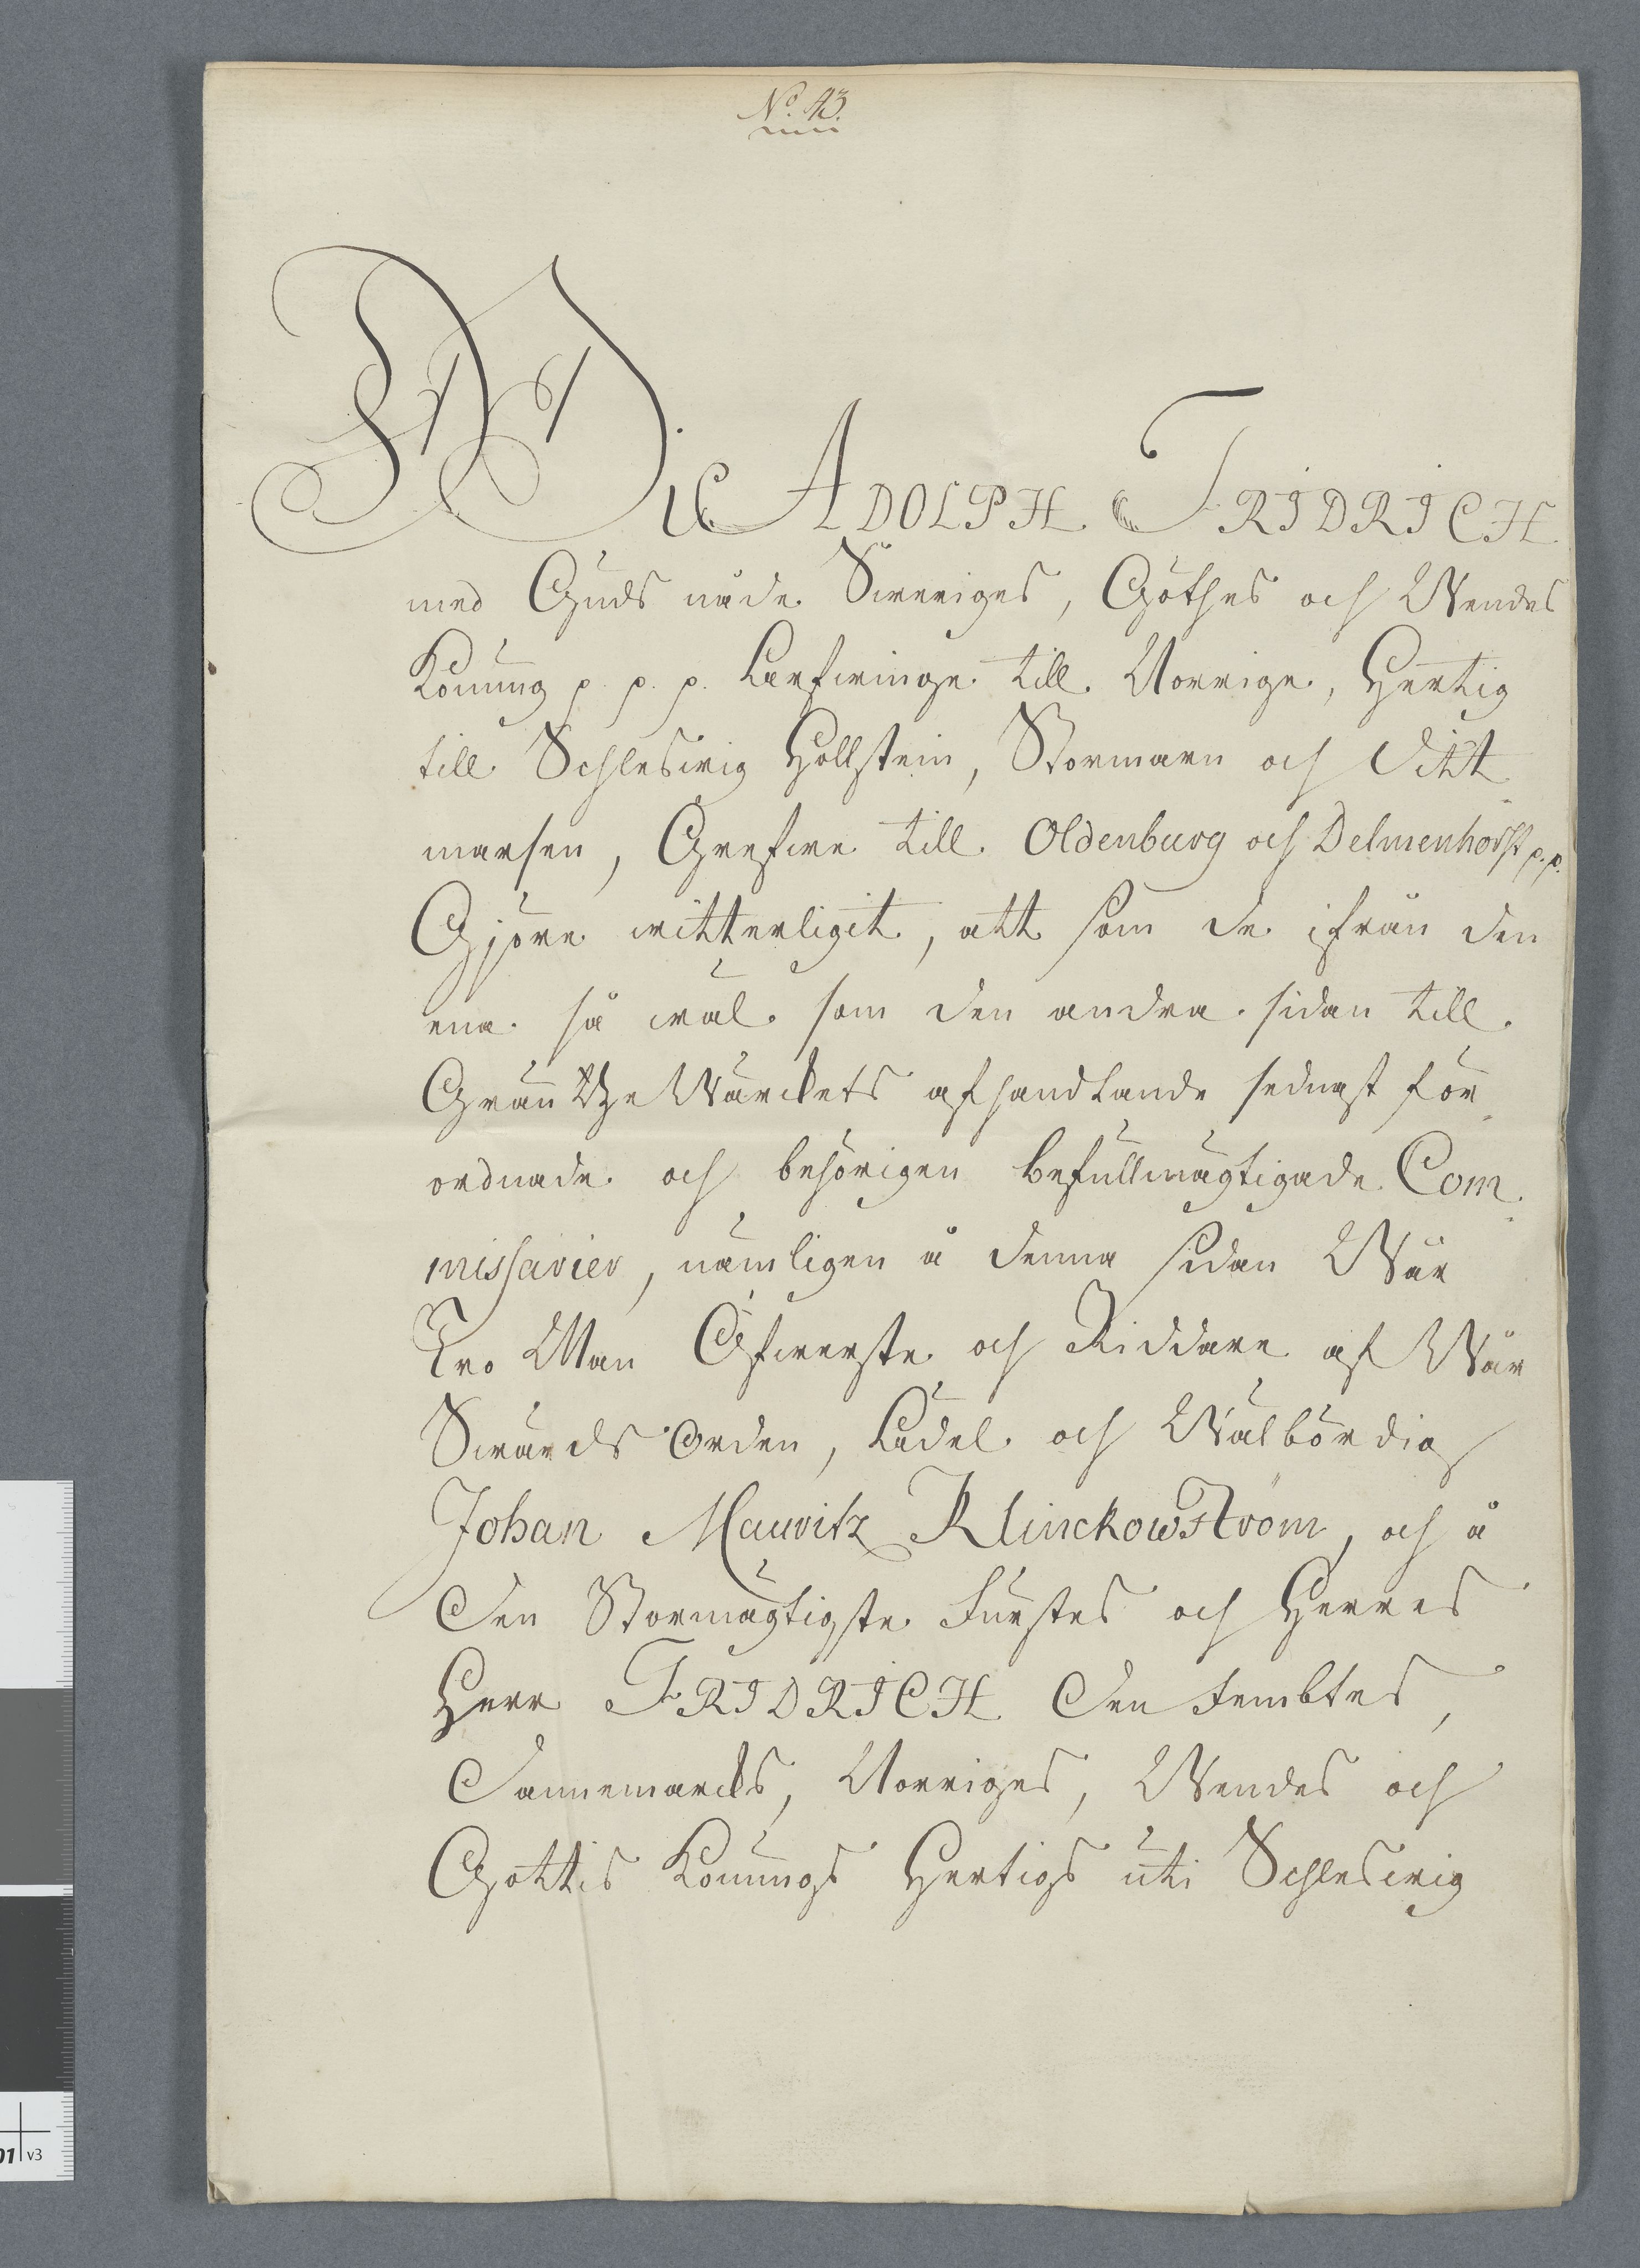 No. 43.
Wi ADOLPH FRIDRICH
med Guds nåde Sweriges, Göthes och Wendes
Konung p. p. p. Larfwinge till Norrige, Hertig
till Schleswig Hollstein, Stormarn och Ditt-
marsen, Grefwe till Oldenburg och Delmenhorst p. p.
Gjöre witterligit, att som de ifrån den
ena så wäl som den andra sidan till
GräntzeWärckets afhandlande sednast för-
ordnade och behörigen befullmägtigade Com-
missarier, nämligen å denna sidan Wår
Tro Man Öfwerste och Riddare af Wår
Swärds Orden, Ladel och Wälbördig
Johan Mauritz Klinckowström, och å
Den Stormägtigste Furstes och Herres
Herr FRIDRICH Den Fembtes,
Dannemarcks, Norriges, Wendes och
Gottis Konungs Hertigs uti Schleswig
01 v3